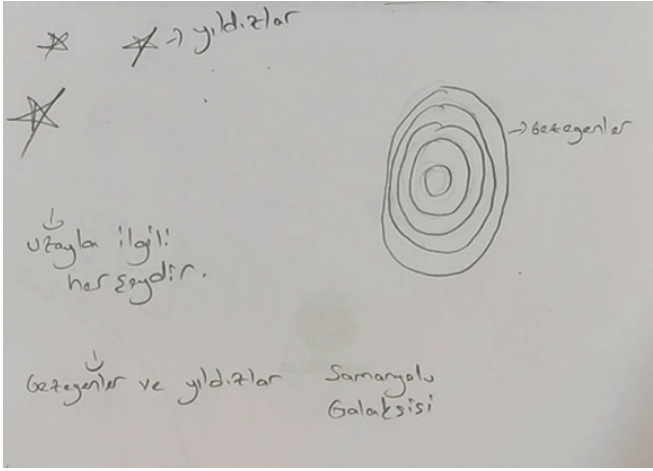 → yıldızlar
→ Gezegenler
Uzayla ilgili
her şeydir.
Gezegenler ve yıldızlar
Samanyolu
Galaksisi